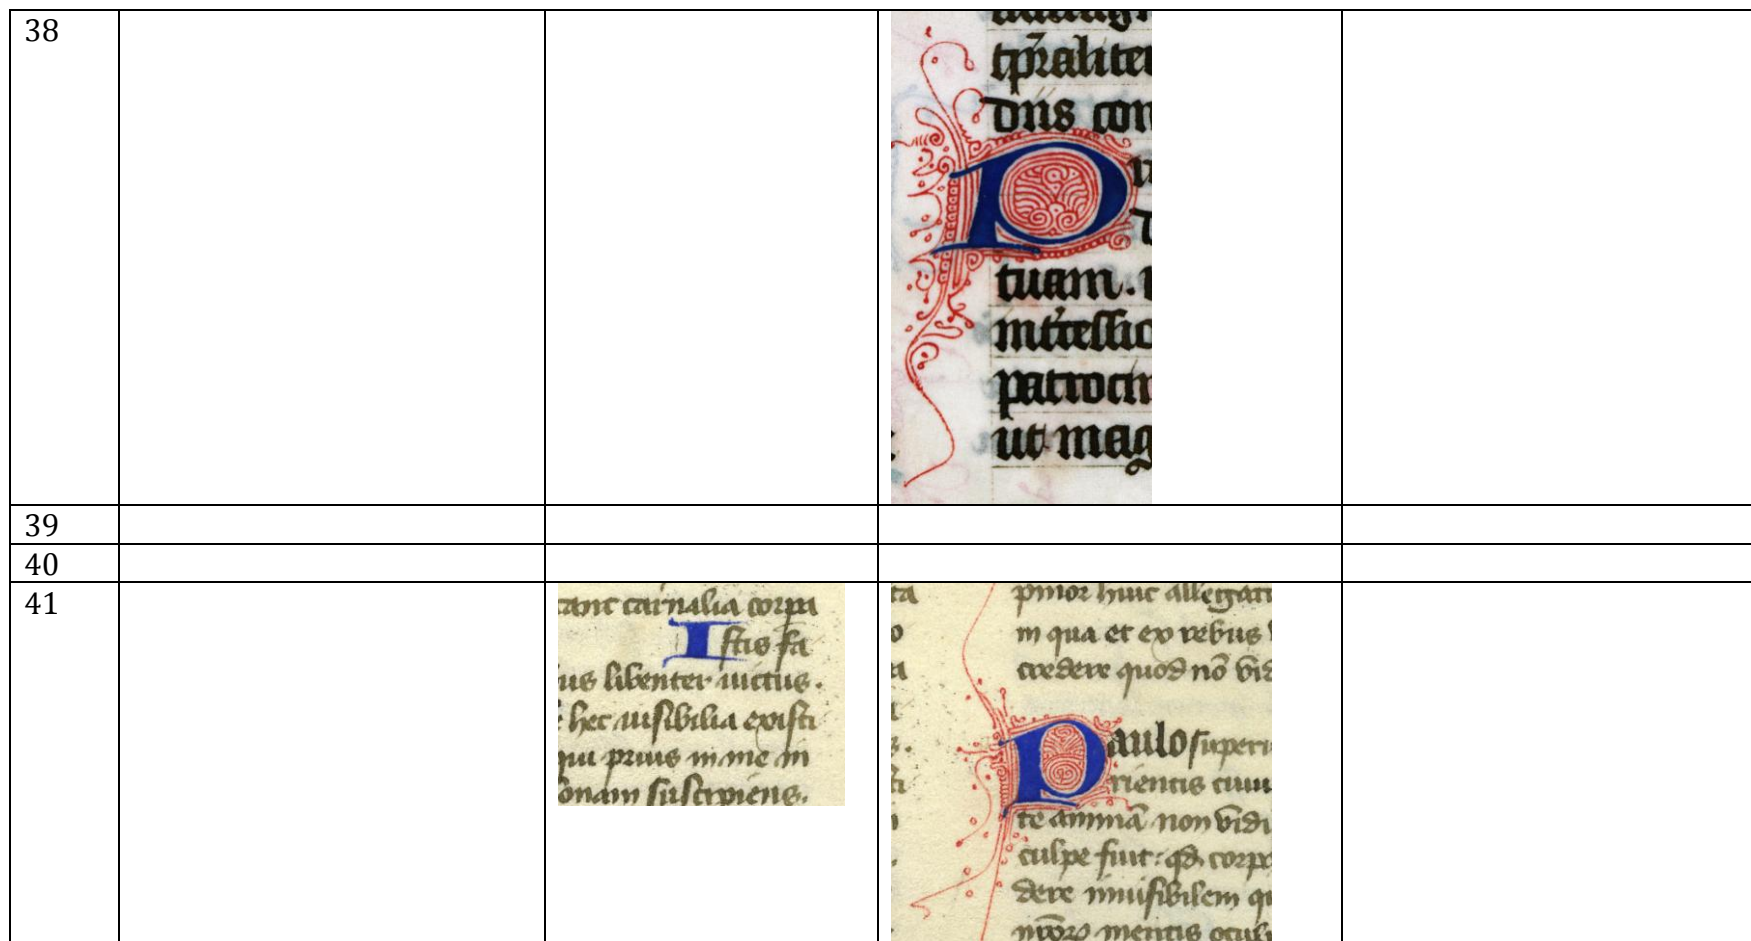 38
tp̄ralite
dn̄s con
P
tuam.
patrocin
ut mag
39
40
41
tant carnalia corpa
Istis fa
us libenter uictus.
hec uisibilia existi
qui prius in me in
onam suscipiens.
prior huic allegati
in qua et ex rebus
credere quod nō vid
Paulo superi
rientis cuiu
te animā non vidi
culpe fuit: qđ corpo
dere inuisibilem
mentis oculi